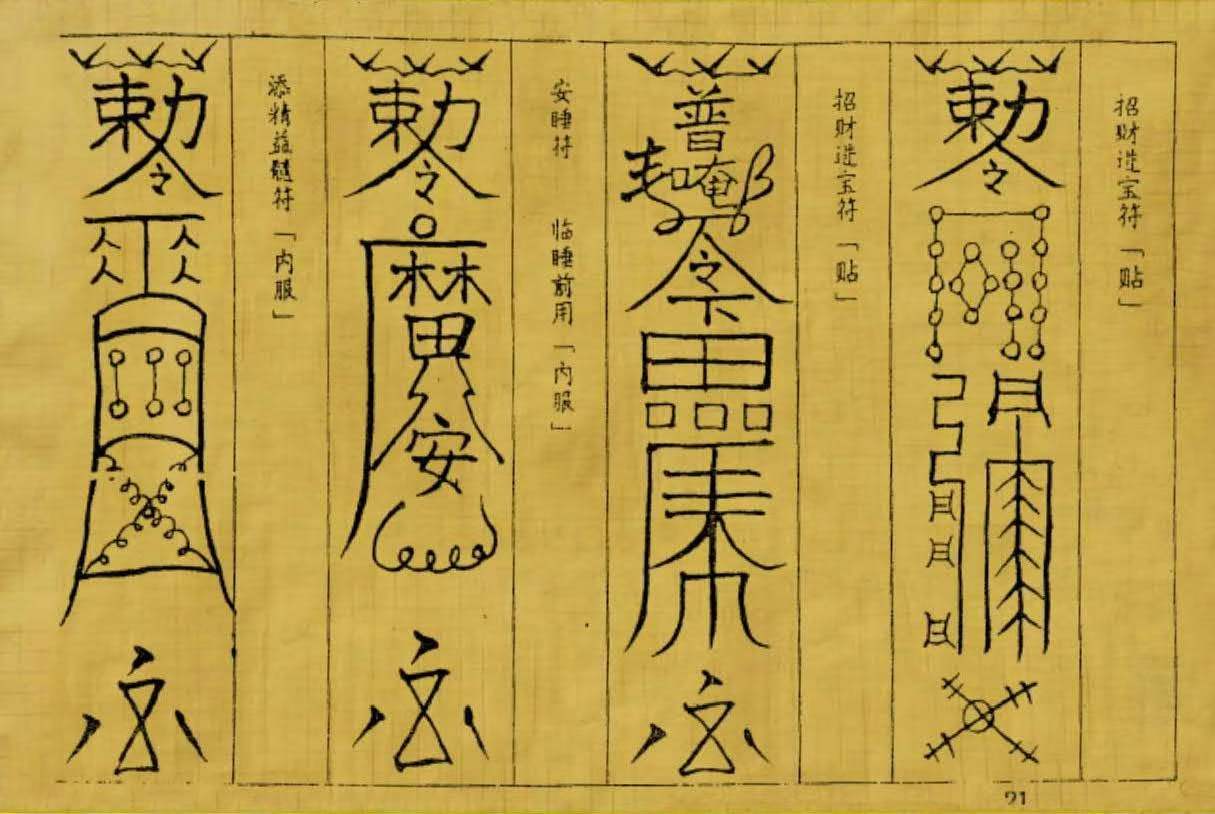 招财进宝符「贴」
勅
令
招财进宝符「贴」
普
唵
令
下
安睡符 临睡前用「内服」
勅
令
安
添精益髓符「内服」
勅
令
21